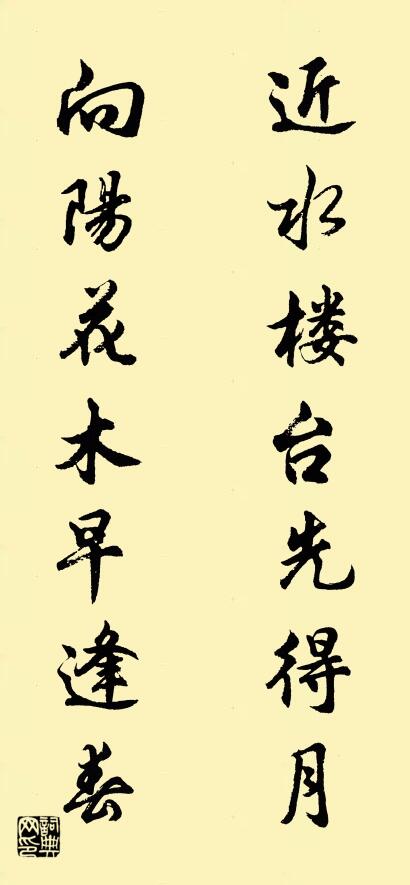 近水楼台先得月
向陽花木早逢春
詞典网印